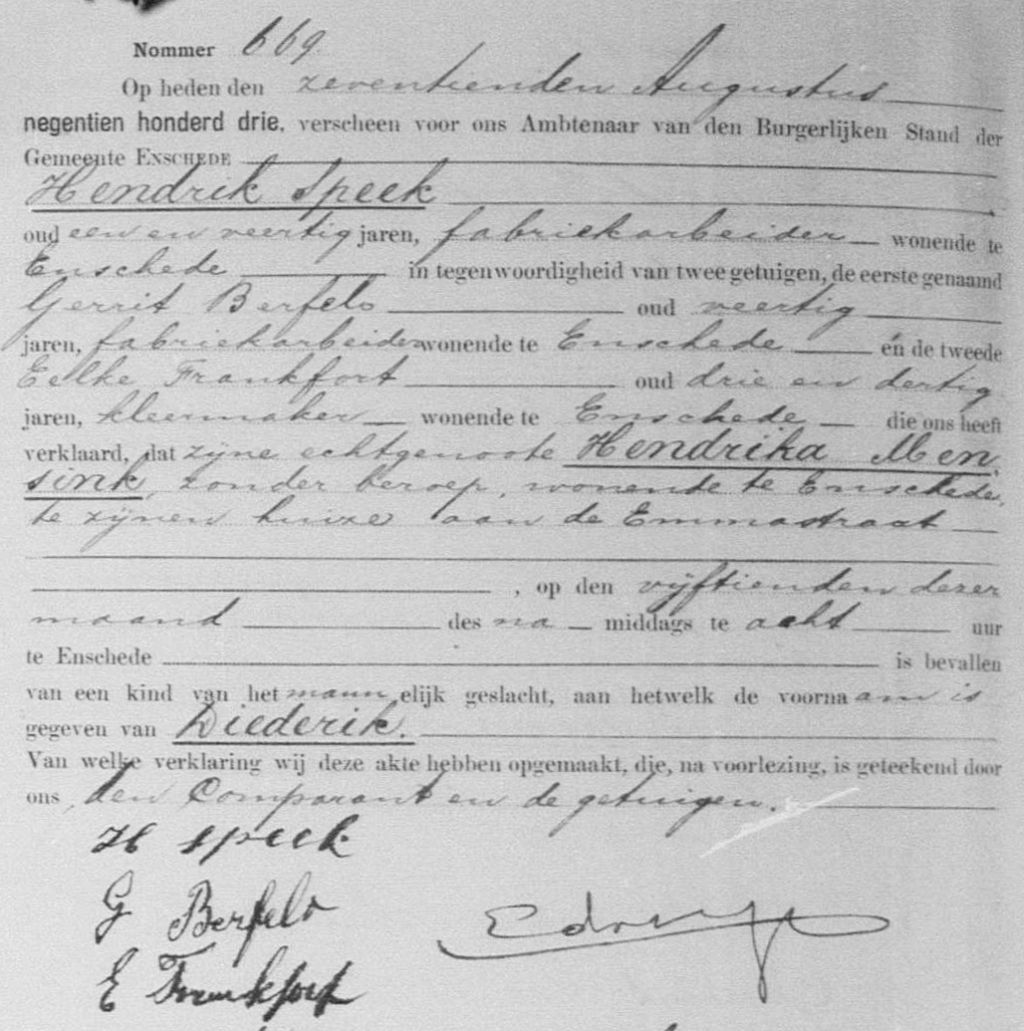 Nommer 669
Op heden den zeventienden Augustus
negentien honderd drie, verscheen voor ons Ambtenaar van den Burgerlijken Stand der
Gemeente ENSCHEDE
Hendrik Speek
oud een en veertig jaren, fabriekarbeider wonende te
Enschede in tegenwoordigheid van twee getuigen, de eerste genaamd
Gerrit Berfelo oud veertig
jaren, fabriekarbeider wonende te Enschede én de tweede
Eelke Frankfort oud drie en dertig
jaren, kleermaker wonende te Enschede die ons heeft
verklaard, dat zijne echtgenoote Hendrika Men
sink, zonder beroep, wonende te Enschede,
te zijnen huize aan de Emmastraat
, op den vijftienden dezer
maand des na middags te acht uur
te Enschede is bevallen
van een kind van het mann elijk geslacht, aan hetwelk de voorna am is
gegeven van Diederik.
Van welke verklaring wij deze akte hebben opgemaakt, die, na voorlezing, is geteekend door
ons, den Comparant en de getuigen.
H Speek
G Berfelo
E Frankfort